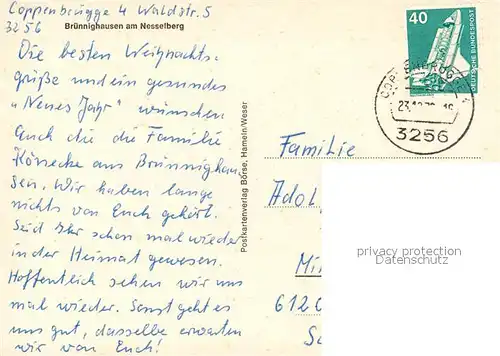 Coppenbrügge 4 Waldstr. 5
3256
Brünnighausen am Nesselberg
Die besten Weihnachts-
grüße und ein gesundes
"Neues Jahr" wünschen
Euch die die Familie
Könecke aus Brünnighau-
sen. Wir haben lange
nichts von Euch gehört.
Seid Ihr schon mal wieder
in der Heimat gewesen.
Hoffentlich sehen wir uns
mal wieder. Sonst geht es
uns gut, dasselbe erwarten
wir von Euch!
Postkartenverlag Börse, Hameln/Weser
40
DEUTSCHE BUNDESPOST
COPPENBRÜGGE
3256
Familie
Adol
Mi
612
privacy protection
Datenschutz